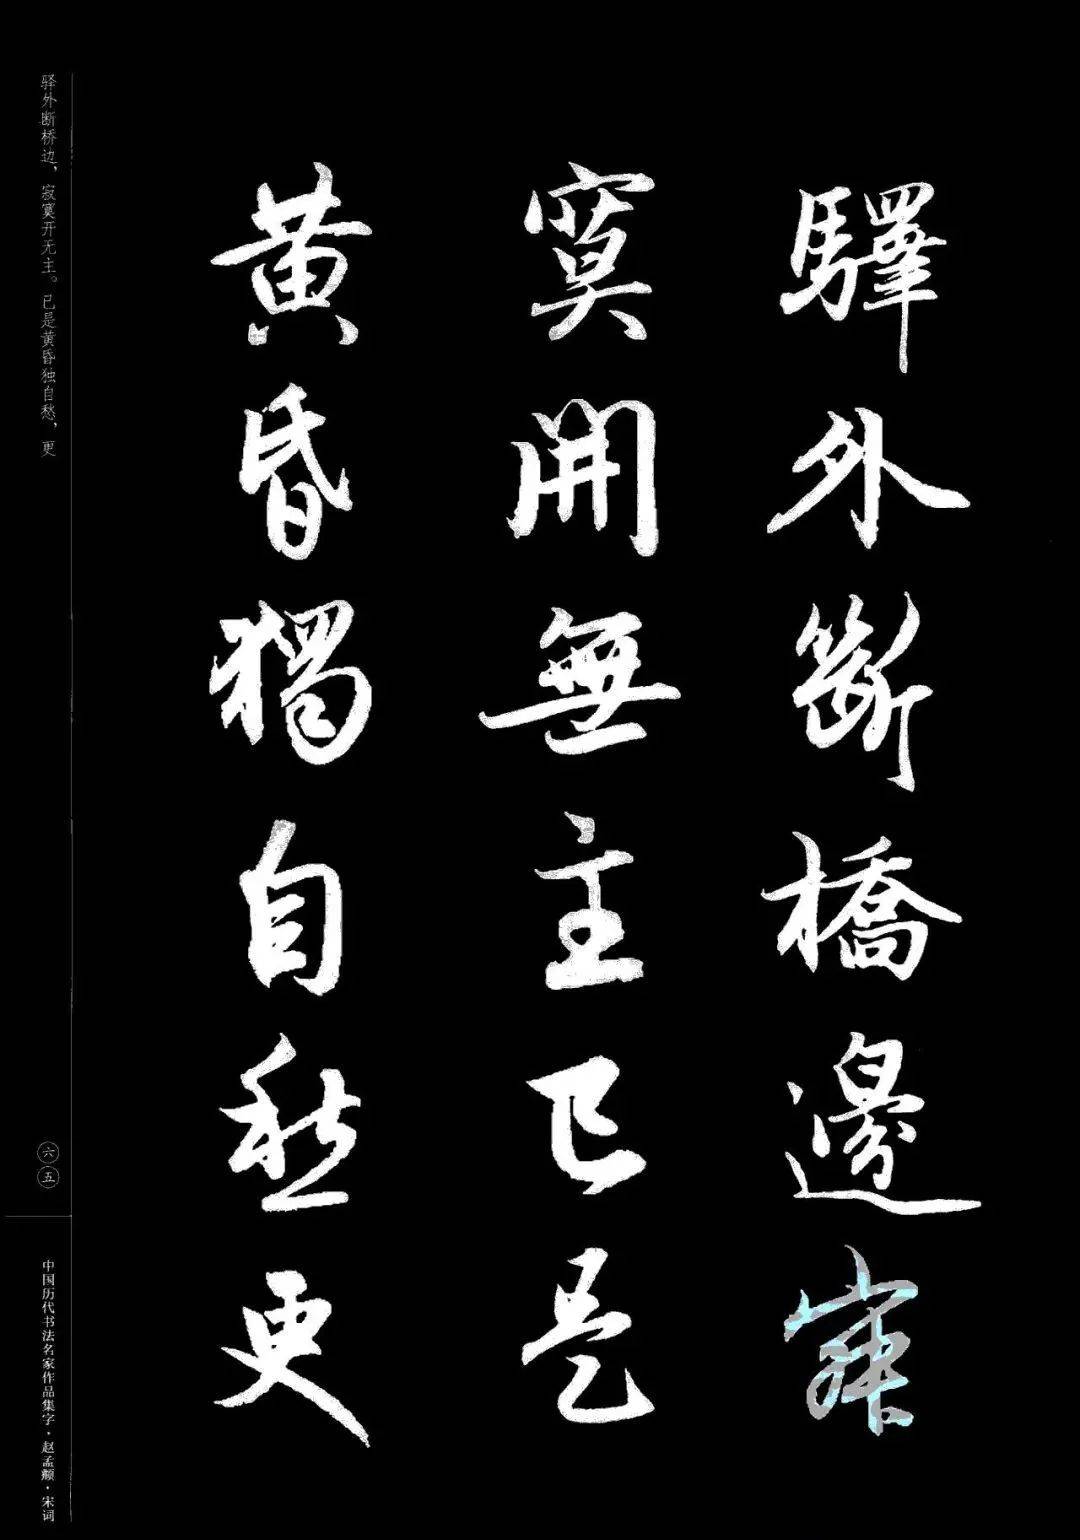 驛外斷橋邊寂
寞開無主已是
黃昏獨自愁更
驿外断桥边，寂寞开无主。已是黄昏独自愁，更
六五
中国历代书法名家作品集字·赵孟頫·宋词